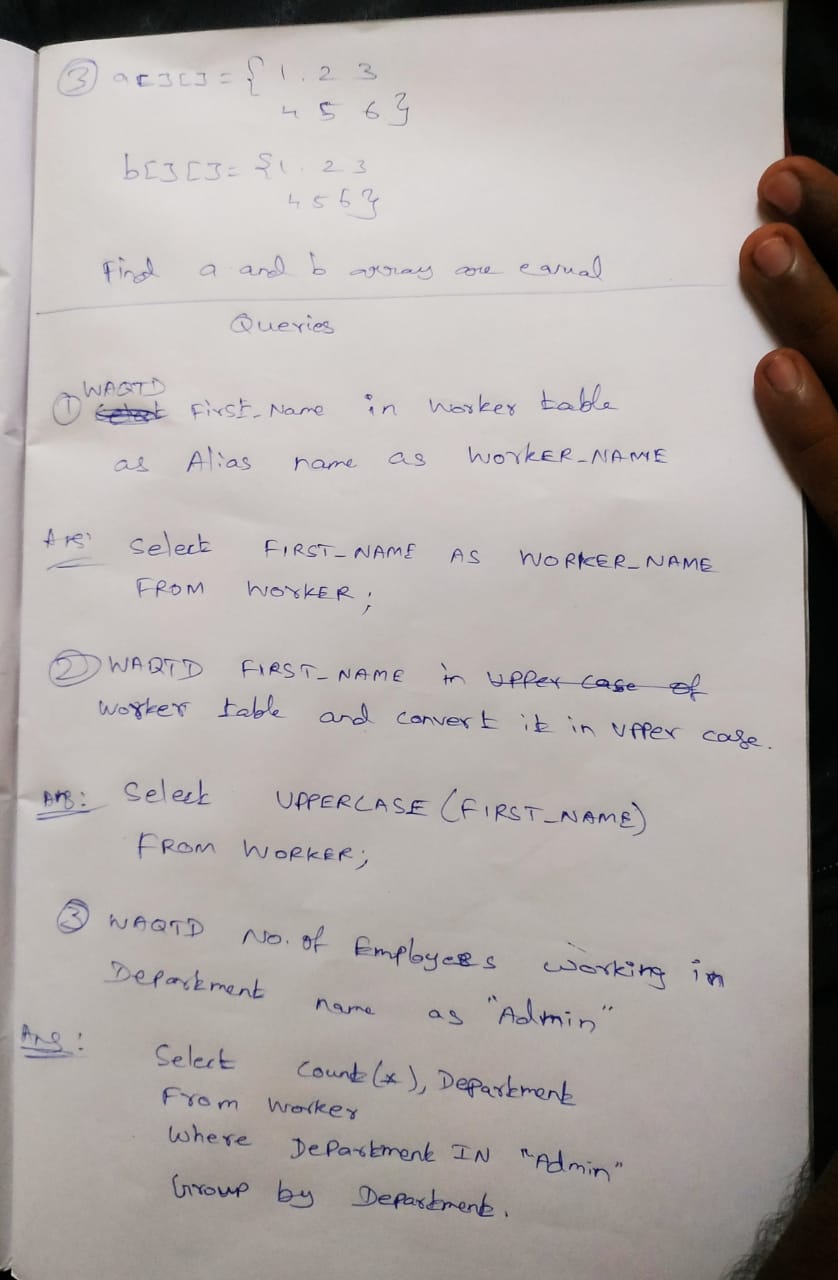 ③ a[][] = { 1. 2 3
4 5 6 }
b[][] = { 1. 2 3
4 5 6 }
Find a and b array are equal
Queries
① WAQTD First_Name in Worker table
as Alias name as WORKER_NAME
Ans: Select FIRST_NAME AS WORKER_NAME
FROM WORKER ;
② WAQTD FIRST_NAME in upper case of
Worker table and convert it in upper case.
Ans: Select UPPERCASE (FIRST_NAME)
FROM WORKER;
③ WAQTD No. of Employees working in
Department name as "Admin"
Ans:
Select Count(*), Department
From Worker
Where Department IN "Admin"
Group by Department.